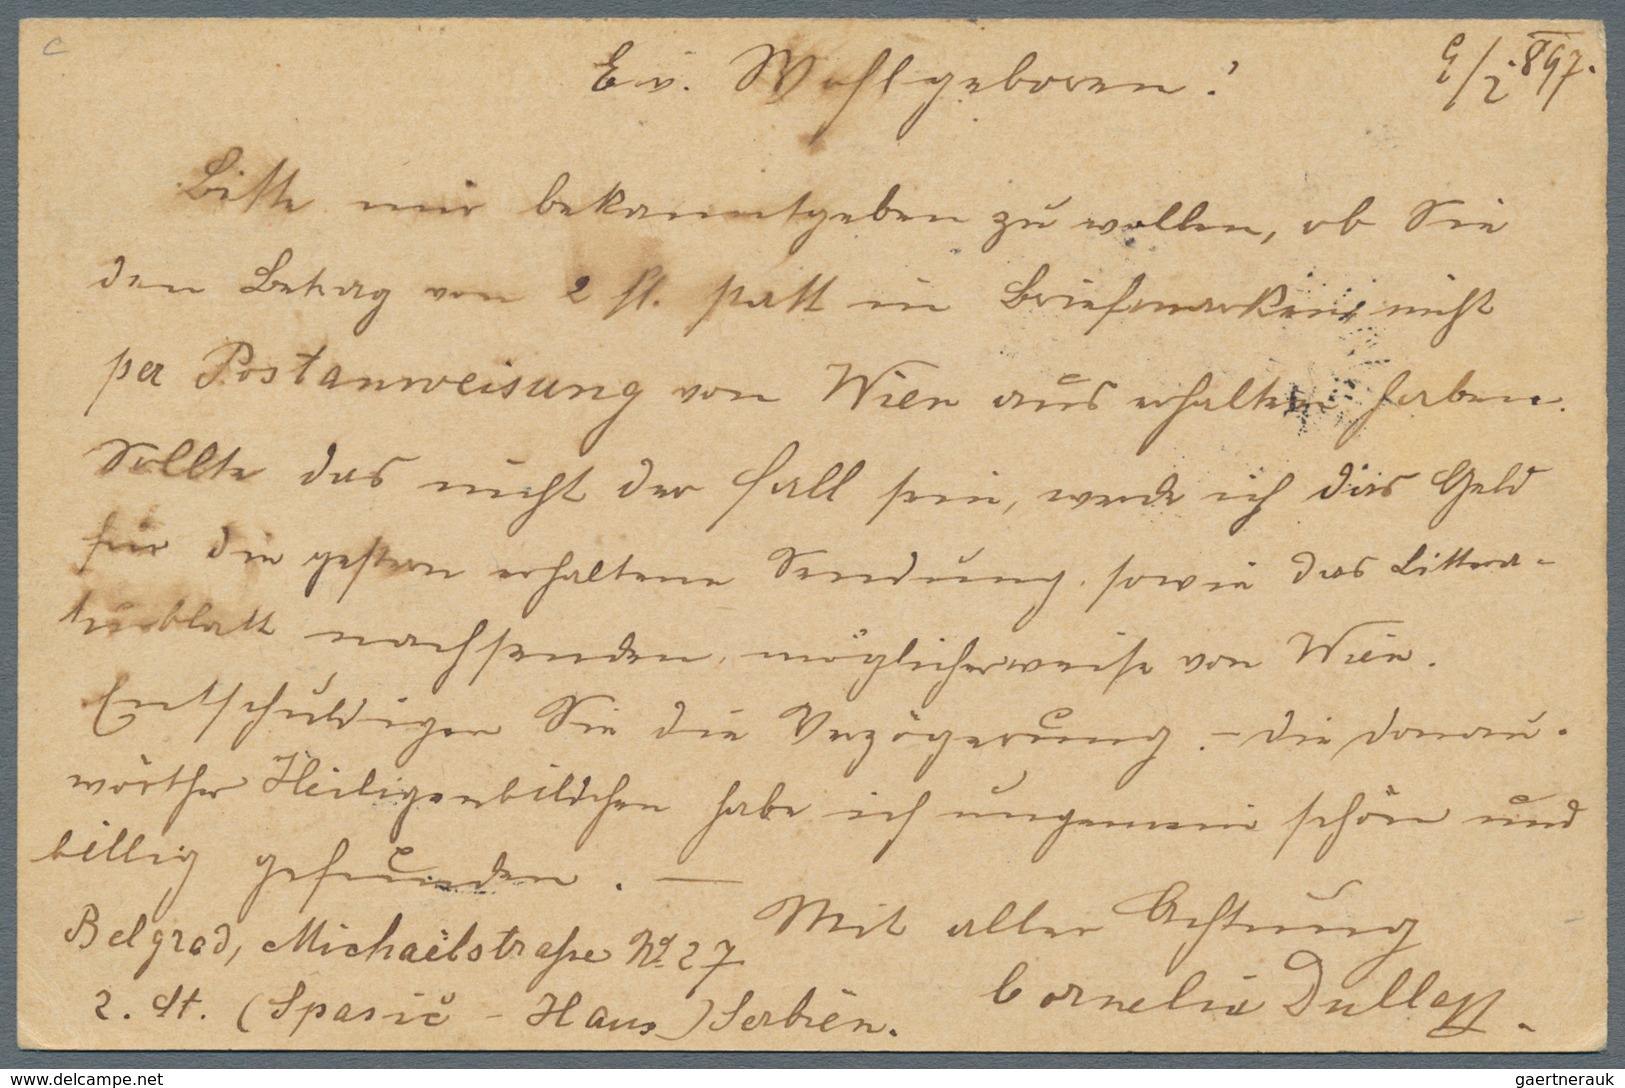 Ew. Wohlgeboren!
9/2. 897.
Bitte mir bekanntgeben zu wollen, ob Sie
den Betrag von 2 fl. statt in Briefmarken nicht
per Postanweisung von Wien aus erhalten haben.
Sollte das nicht der Fall sein, werde ich das Geld
für die gestern erhaltene Sendung, sowie das Littera-
turblatt nachsenden, möglicherweise von Wien.
Entschuldigen Sie die Verzögerung. – Die Donau-
wörther Heiligenbildchen habe ich ungemein schön und
billig gefunden. —
Mit aller Achtung
Belgrad, Michaëlstraße No 27
Cornelia
2. St. (Spasić - Haus) Serbien.
gaertnerauk
www.delcampe.net